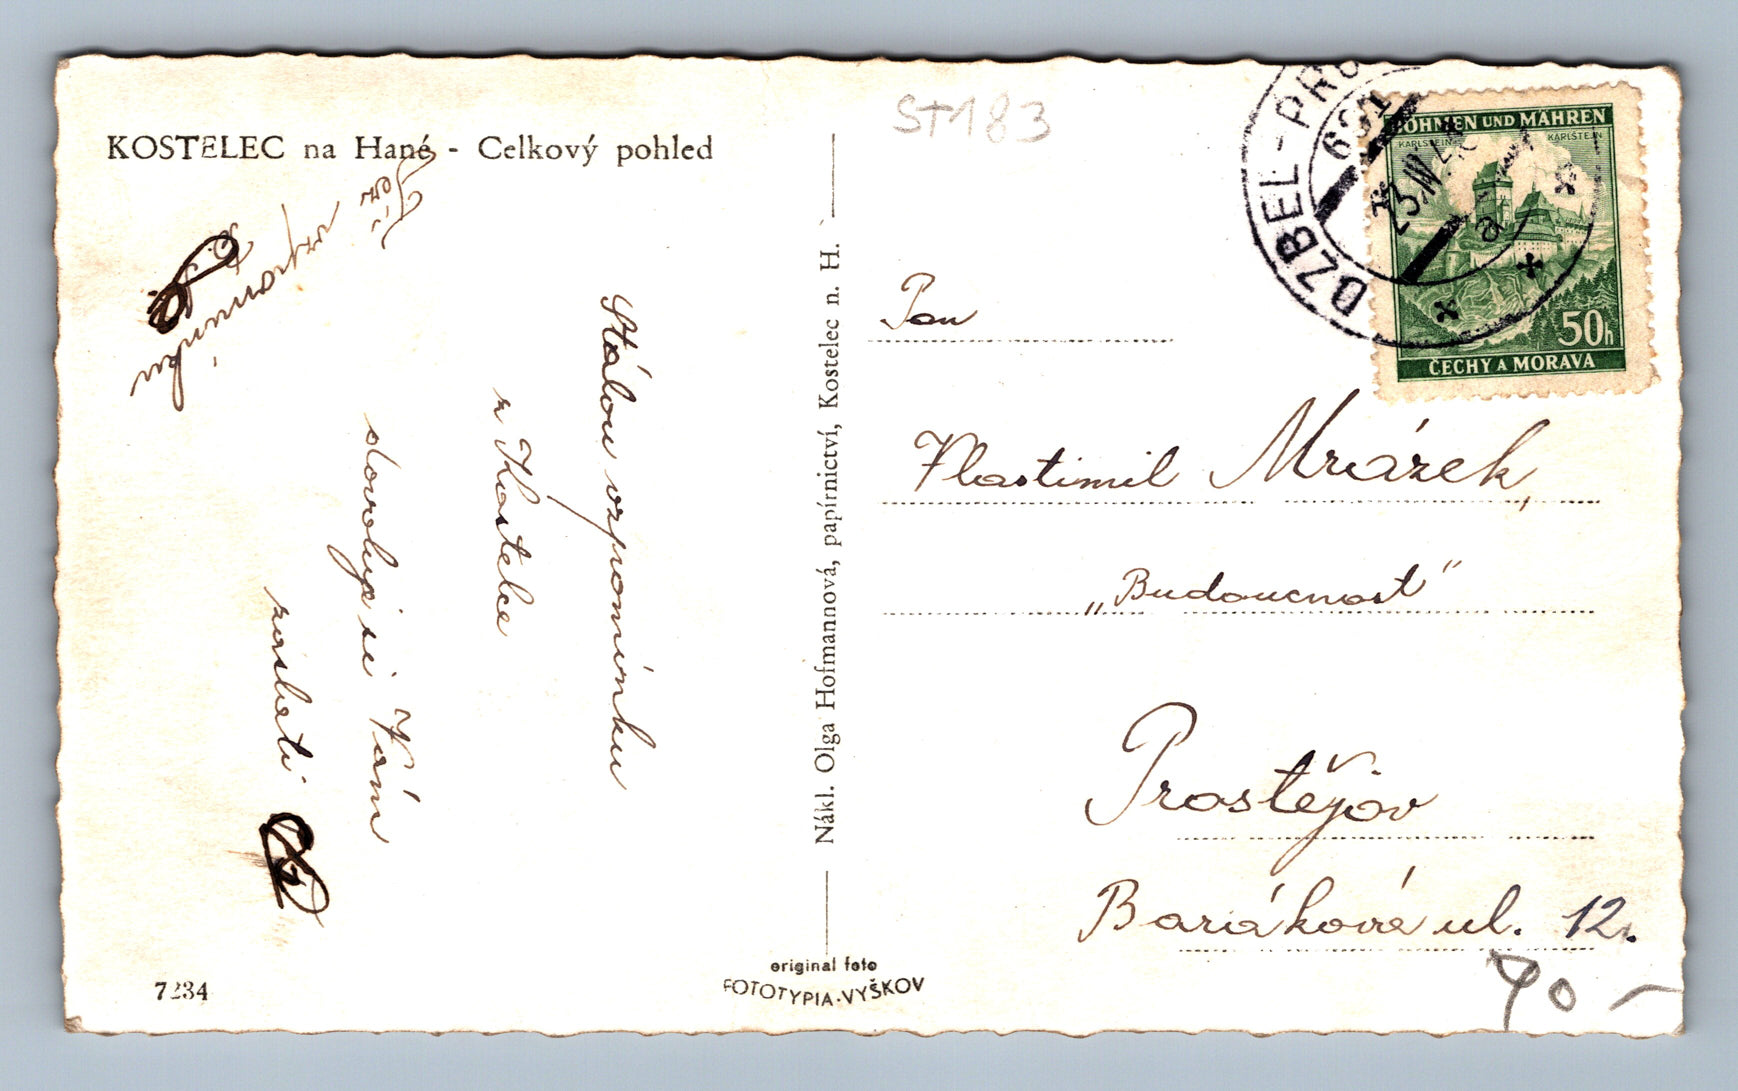 KOSTELEC na Hané - Celkový pohled
ST183
DZBEL-PR
631
23.IV.4
a
BÖHMEN UND MÄHREN
KARLSTEIN KARLŠTEJN
50h
ČECHY A MORAVA
Též
vzpomínku
Stálou vzpomínku
z Kostelce
dovoluji si Vám
zaslati
Nákl. Olga Hofmannová, papírnictví, Kostelec n. H.
Pan
Vlastimil Mrázek,
„Budoucnost"
Prostějov
Barákova ul. 12.
90 -
7234
original foto
FOTOTYPIA-VYŠKOV